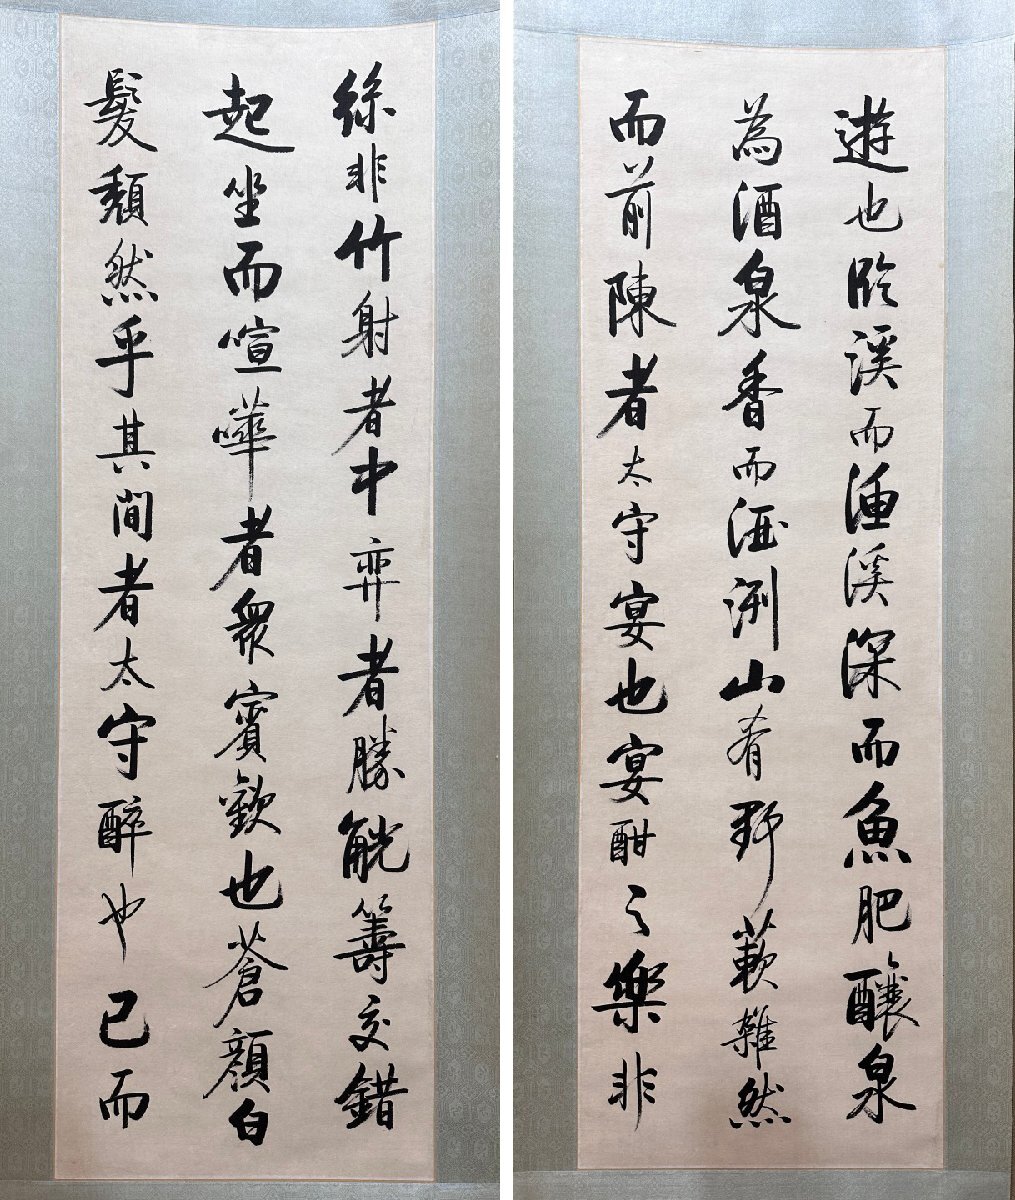 遊也臨溪而漁溪深而魚肥釀泉
為酒泉香而酒洌山肴野蔌雜然
而前陳者太守宴也宴酣之樂非
絲非竹射者中弈者勝觥籌交錯
起坐而喧嘩者衆賓歡也蒼顏白
髮頹然乎其間者太守醉也已而